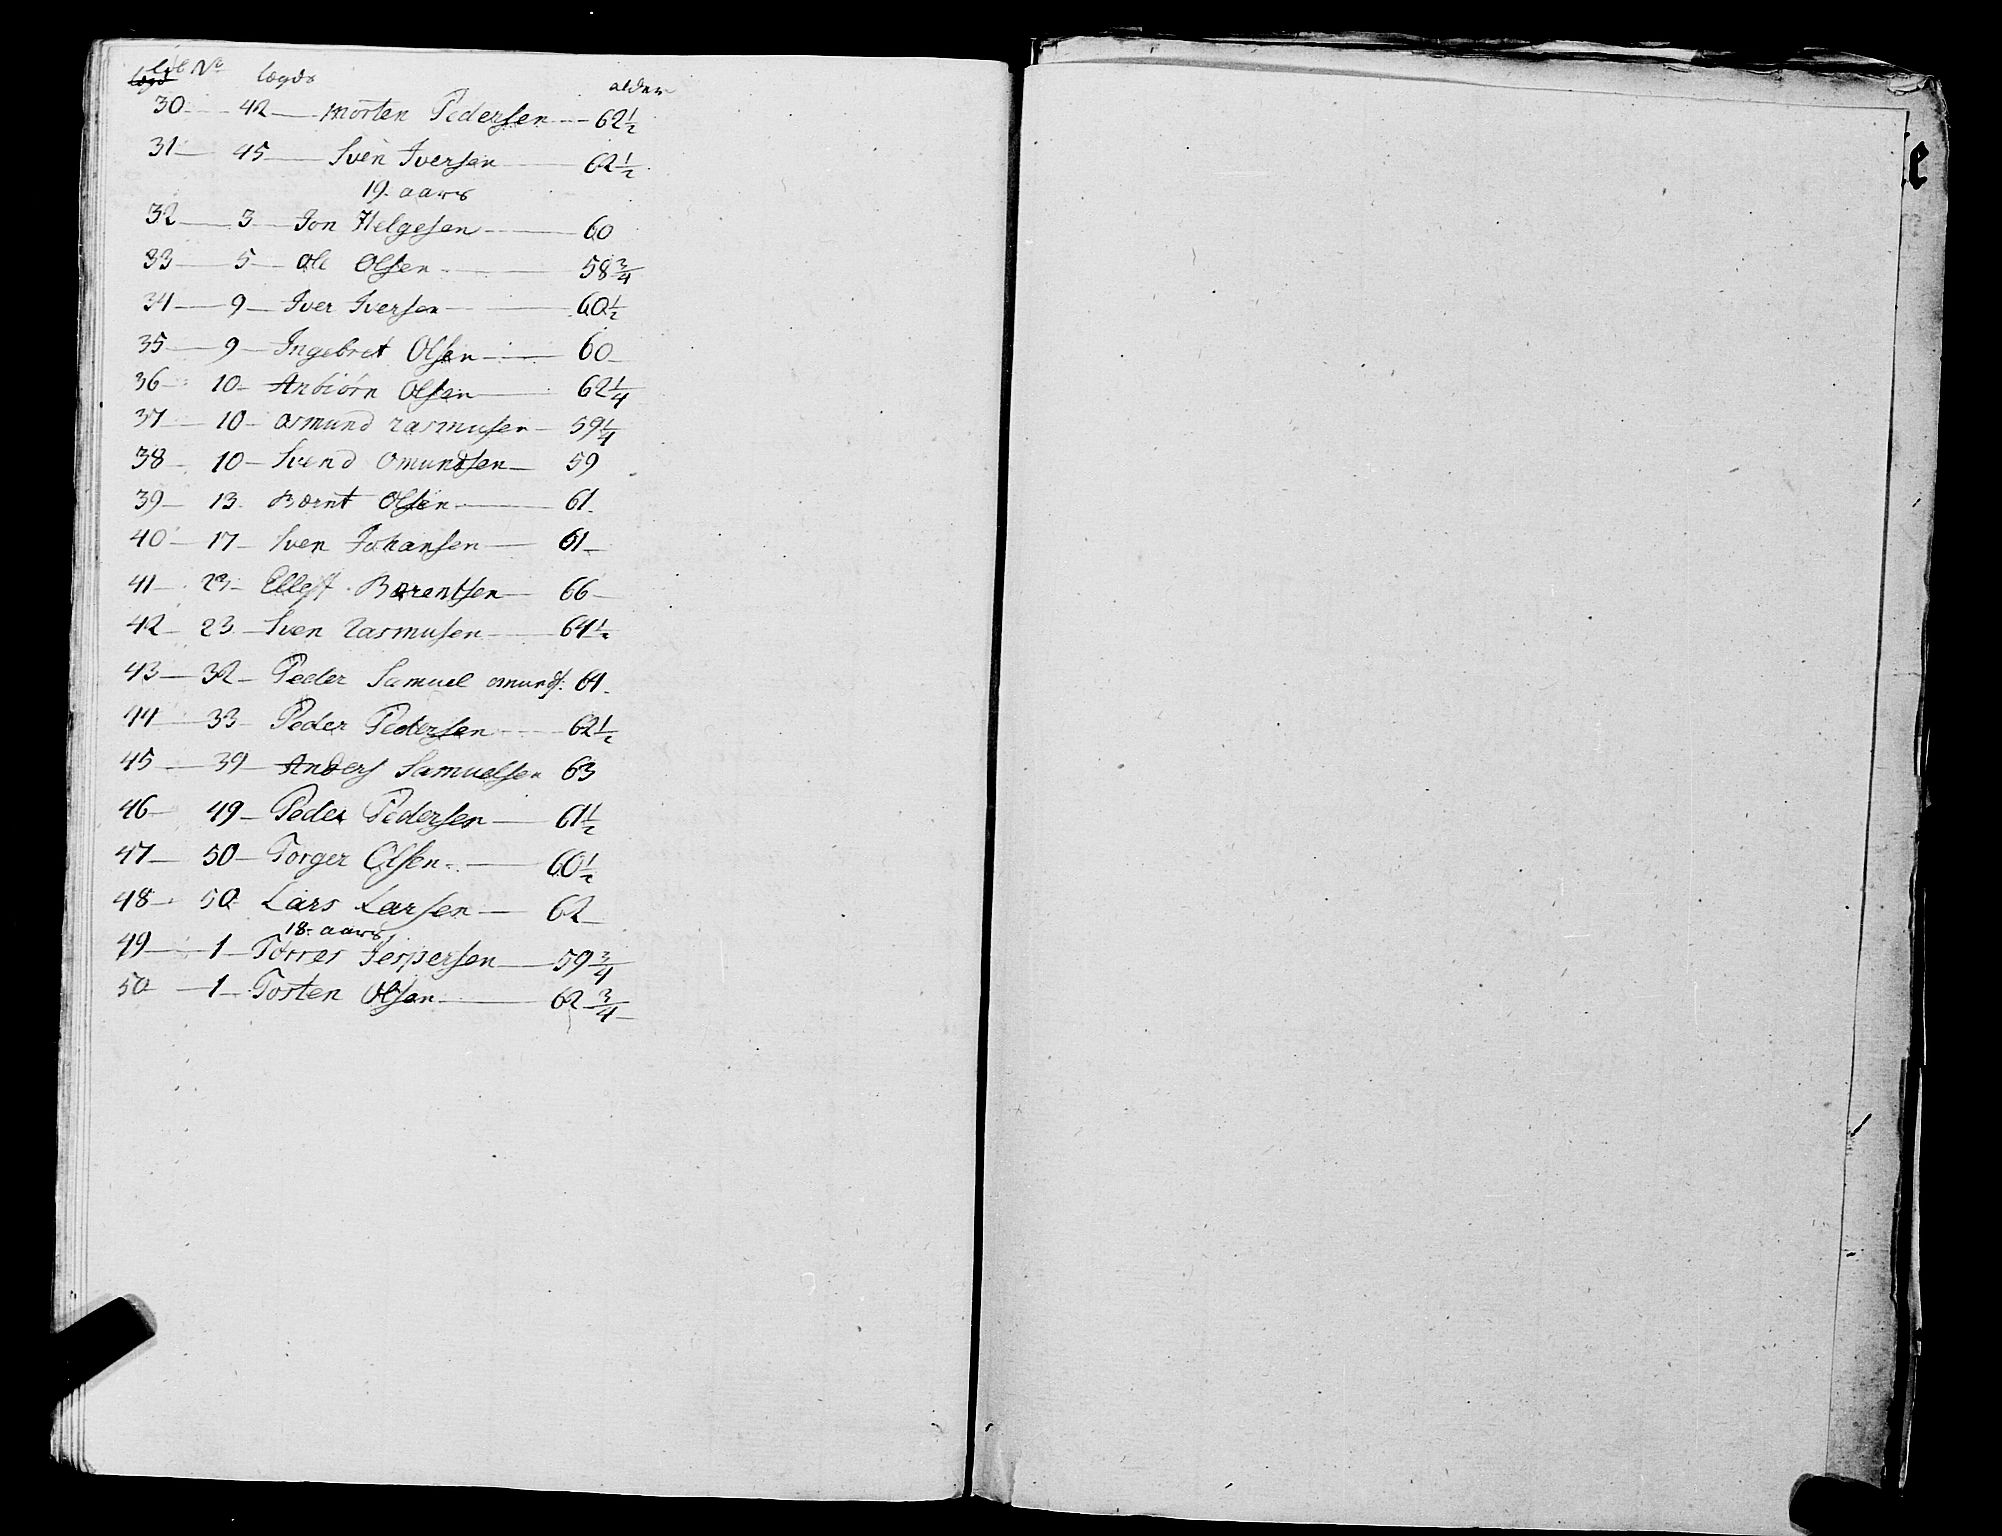 løb No lægds alder
30 42 Morten Pedersen 62 1/2
31 45 Sven Iversen 62 1/2
19 aars
32 3 Jon Helgesen 60
33 5 Ole Olsen 58 3/4
34 9 Iver Iversen 60 1/2
35 9 Ingebret Olsen 60
36 10 Anbiørn Olsen 62 1/4
37 10 Osmund Rasmusen 59 1/4
38 10 Svend Omundsen 59
39 13 Bærnt Olsen 61
40 17 Sven Johansen 61
41 23 Ellef Barentsen 66
42 23 Sven Rasmusen 64 1/2
43 32 Peder Samuel omunds: 61
44 33 Peder Pedersen 62 1/2
45 39 Anders Samuelsen 63
46 49 Peder Pedersen 61 1/2
47 50 Torger Olsen 60 1/2
48 50 Lars Larsen 62
18 aars
49 1 Torres Jespersen 59 3/4
50 1 Tosten Olsen 62 3/4
e